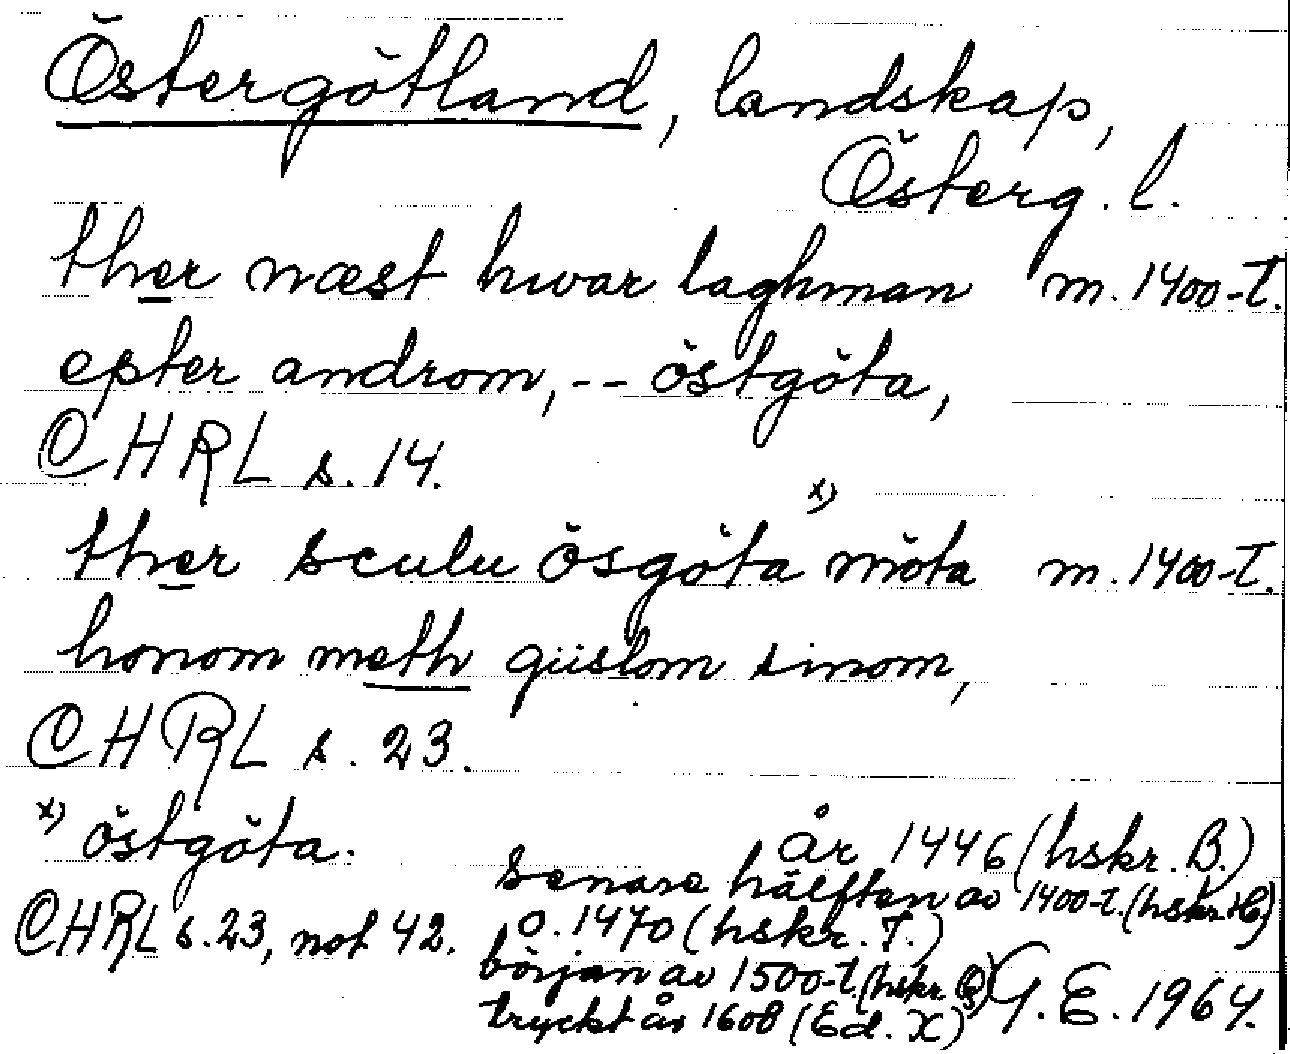 Östergötland, landskap,
Österg. l.
ther næst hwar laghman m. 1400-t.
epter androm, -- östgöta,
CHRL s. 14.
ther sculu ösgöta x) möta m. 1400-t.
honom meth giislom sinom,
CHRL s. 23.
x) östgöta.
CHRL s. 23, not 42.
år 1446 (hskr. B.)
senare hälften av 1400-t. (hskr.
o. 1470 (hskr. T.)
början av 1500-t. (hskr. Q)
tryckt år 1608 (Ed. X)
G. E. 1964.